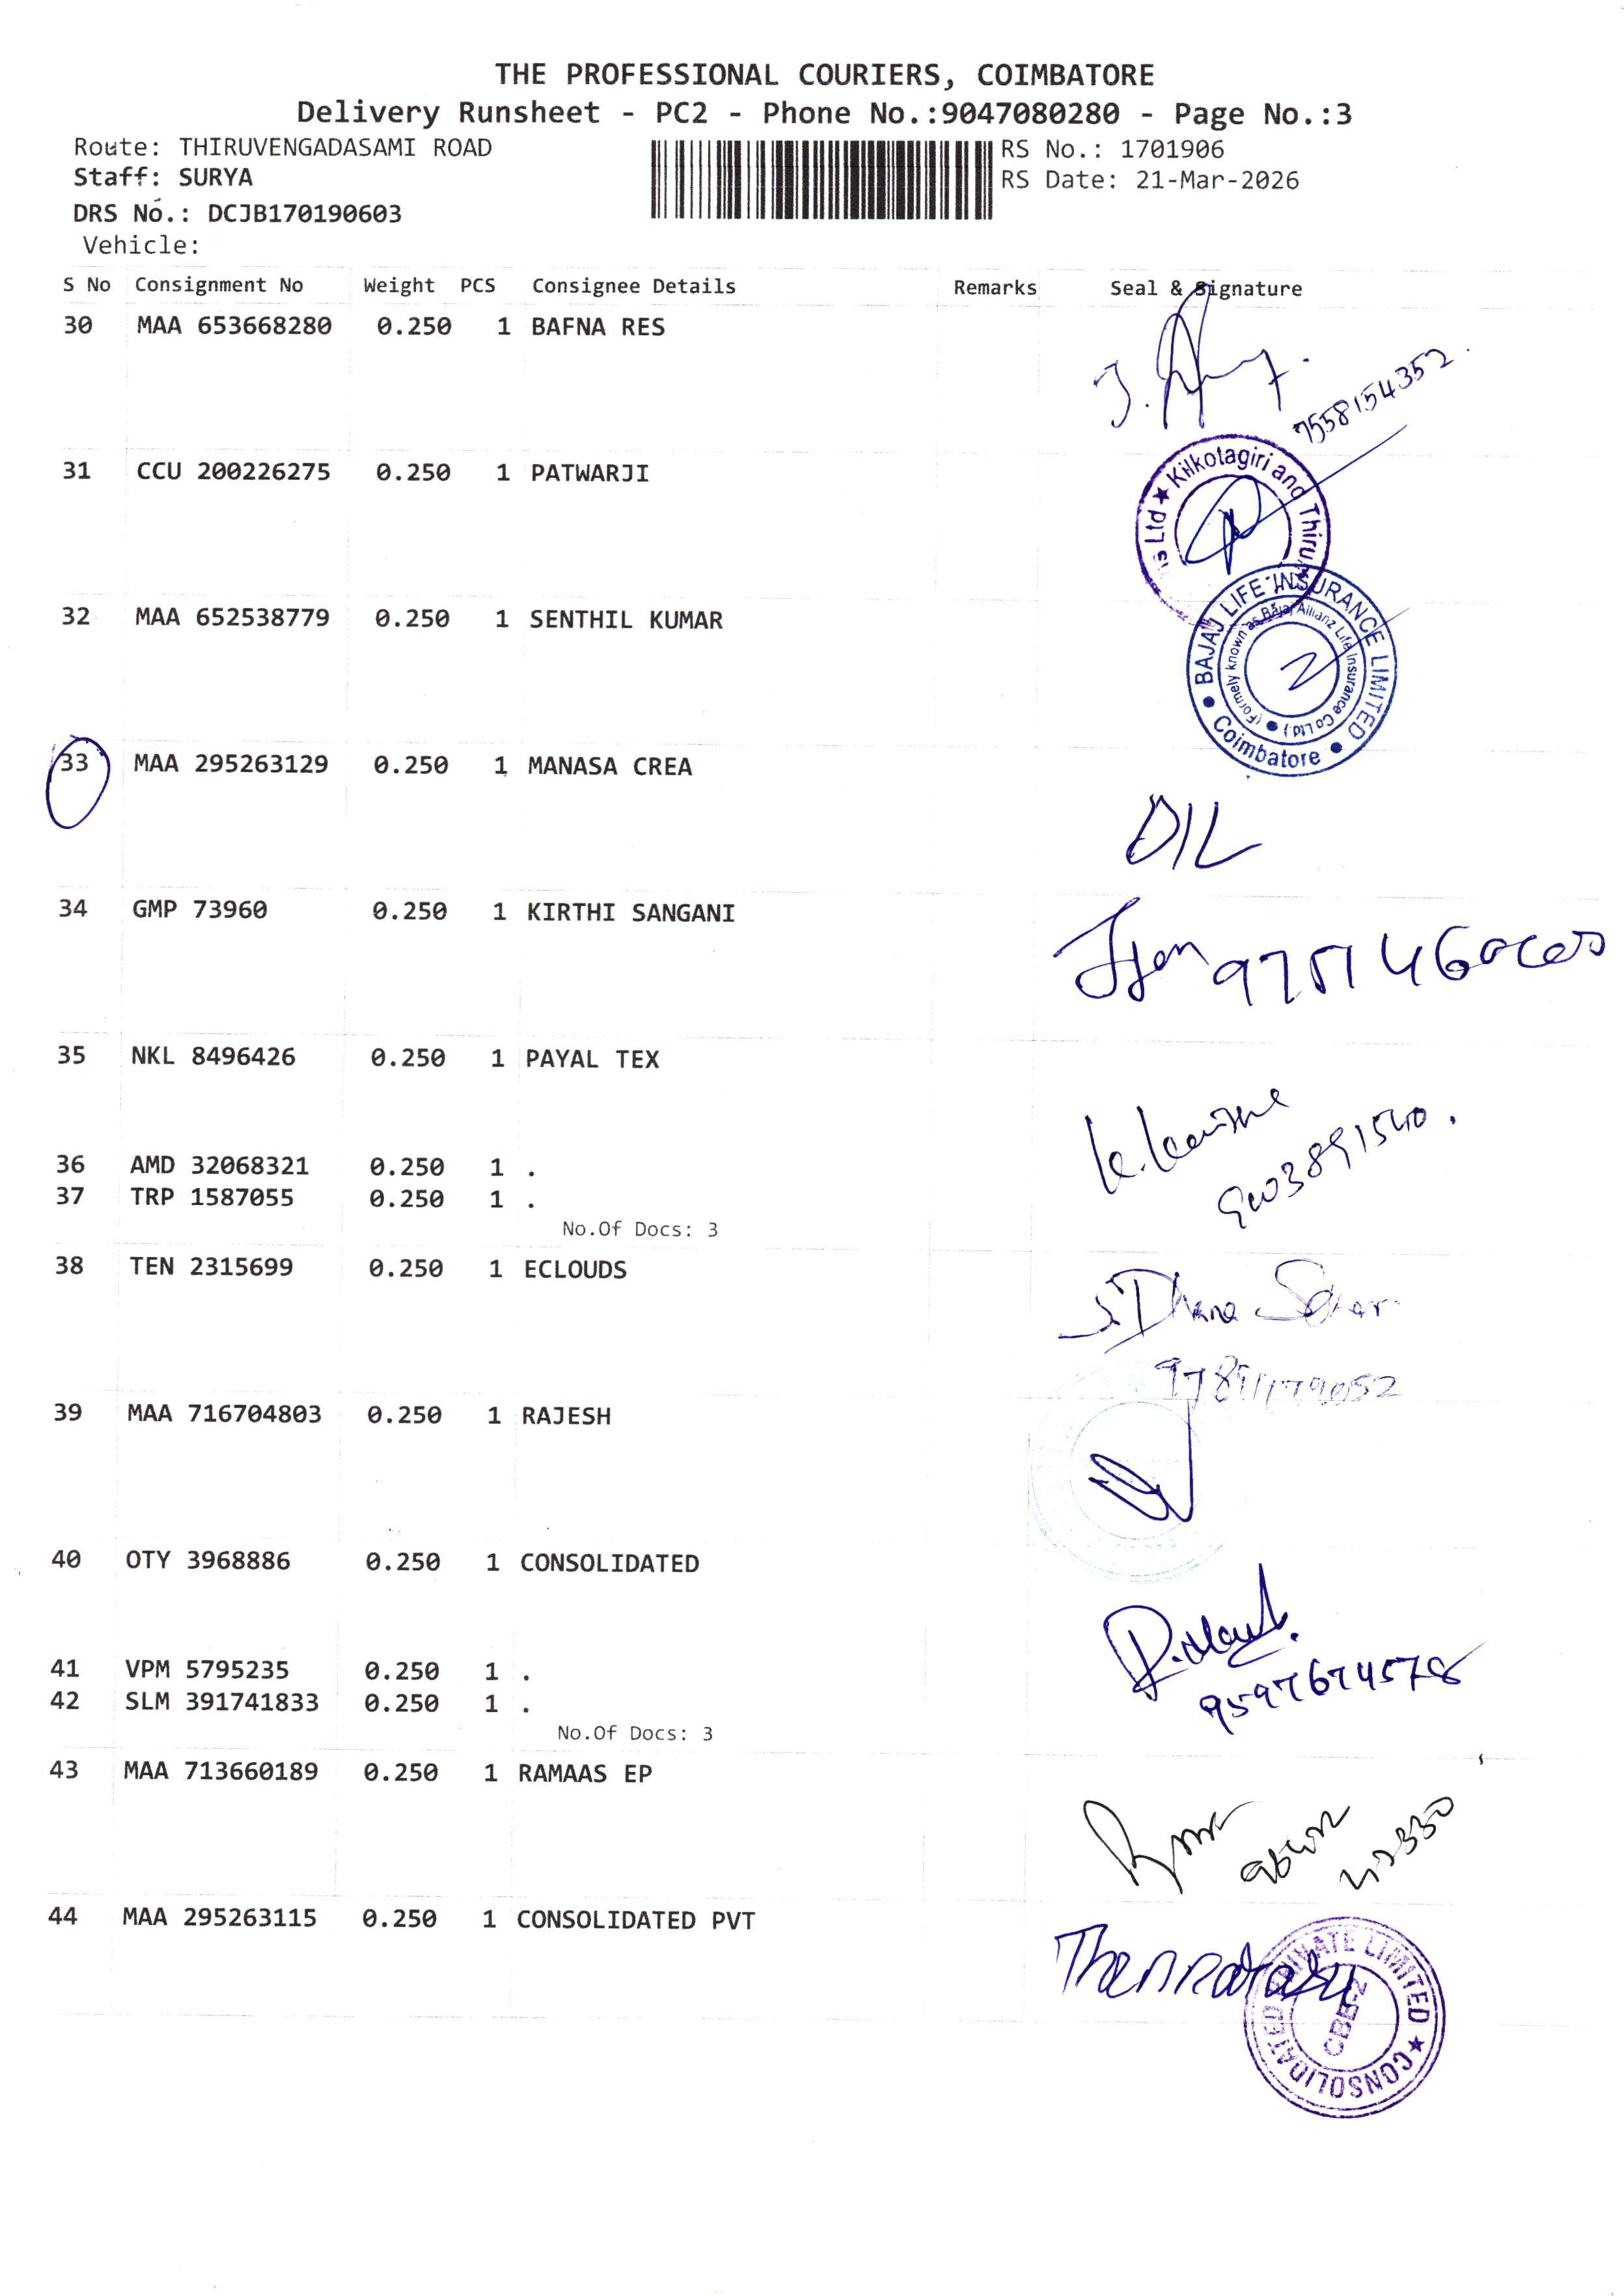 THE PROFESSIONAL COURIERS, COIMBATORE
Delivery Runsheet - PC2 - Phone No.:9047080280 - Page No.:3
Route: THIRUVENGADASAMI ROAD
RS No.: 1701906
Staff: SURYA
RS Date: 21-Mar-2026
DRS No.: DCJB170190603
Vehicle:
S No Consignment No Weight PCS Consignee Details Remarks Seal & Signature
30 MAA 653668280 0.250 1 BAFNA RES
7558154352
31 CCU 200226275 0.250 1 PATWARJI
Ltd ★ Kilkotagiri and Thiru
32 MAA 652538779 0.250 1 SENTHIL KUMAR
BAJAJ LIFE INSURANCE LIMITED
(Formely known as Bajaj Allianz Life Insurance Co Ltd)
Coimbatore
33 MAA 295263129 0.250 1 MANASA CREA
D/L
34 GMP 73960 0.250 1 KIRTHI SANGANI
35 NKL 8496426 0.250 1 PAYAL TEX
36 AMD 32068321 0.250 1 .
37 TRP 1587055 0.250 1 .
No.Of Docs: 3
38 TEN 2315699 0.250 1 ECLOUDS
39 MAA 716704803 0.250 1 RAJESH
40 OTY 3968886 0.250 1 CONSOLIDATED
41 VPM 5795235 0.250 1 .
9597674578
42 SLM 391741833 0.250 1 .
No.Of Docs: 3
43 MAA 713660189 0.250 1 RAMAAS EP
44 MAA 295263115 0.250 1 CONSOLIDATED PVT
CONSOLIDATED PRIVATE LIMITED ★
CBE-2